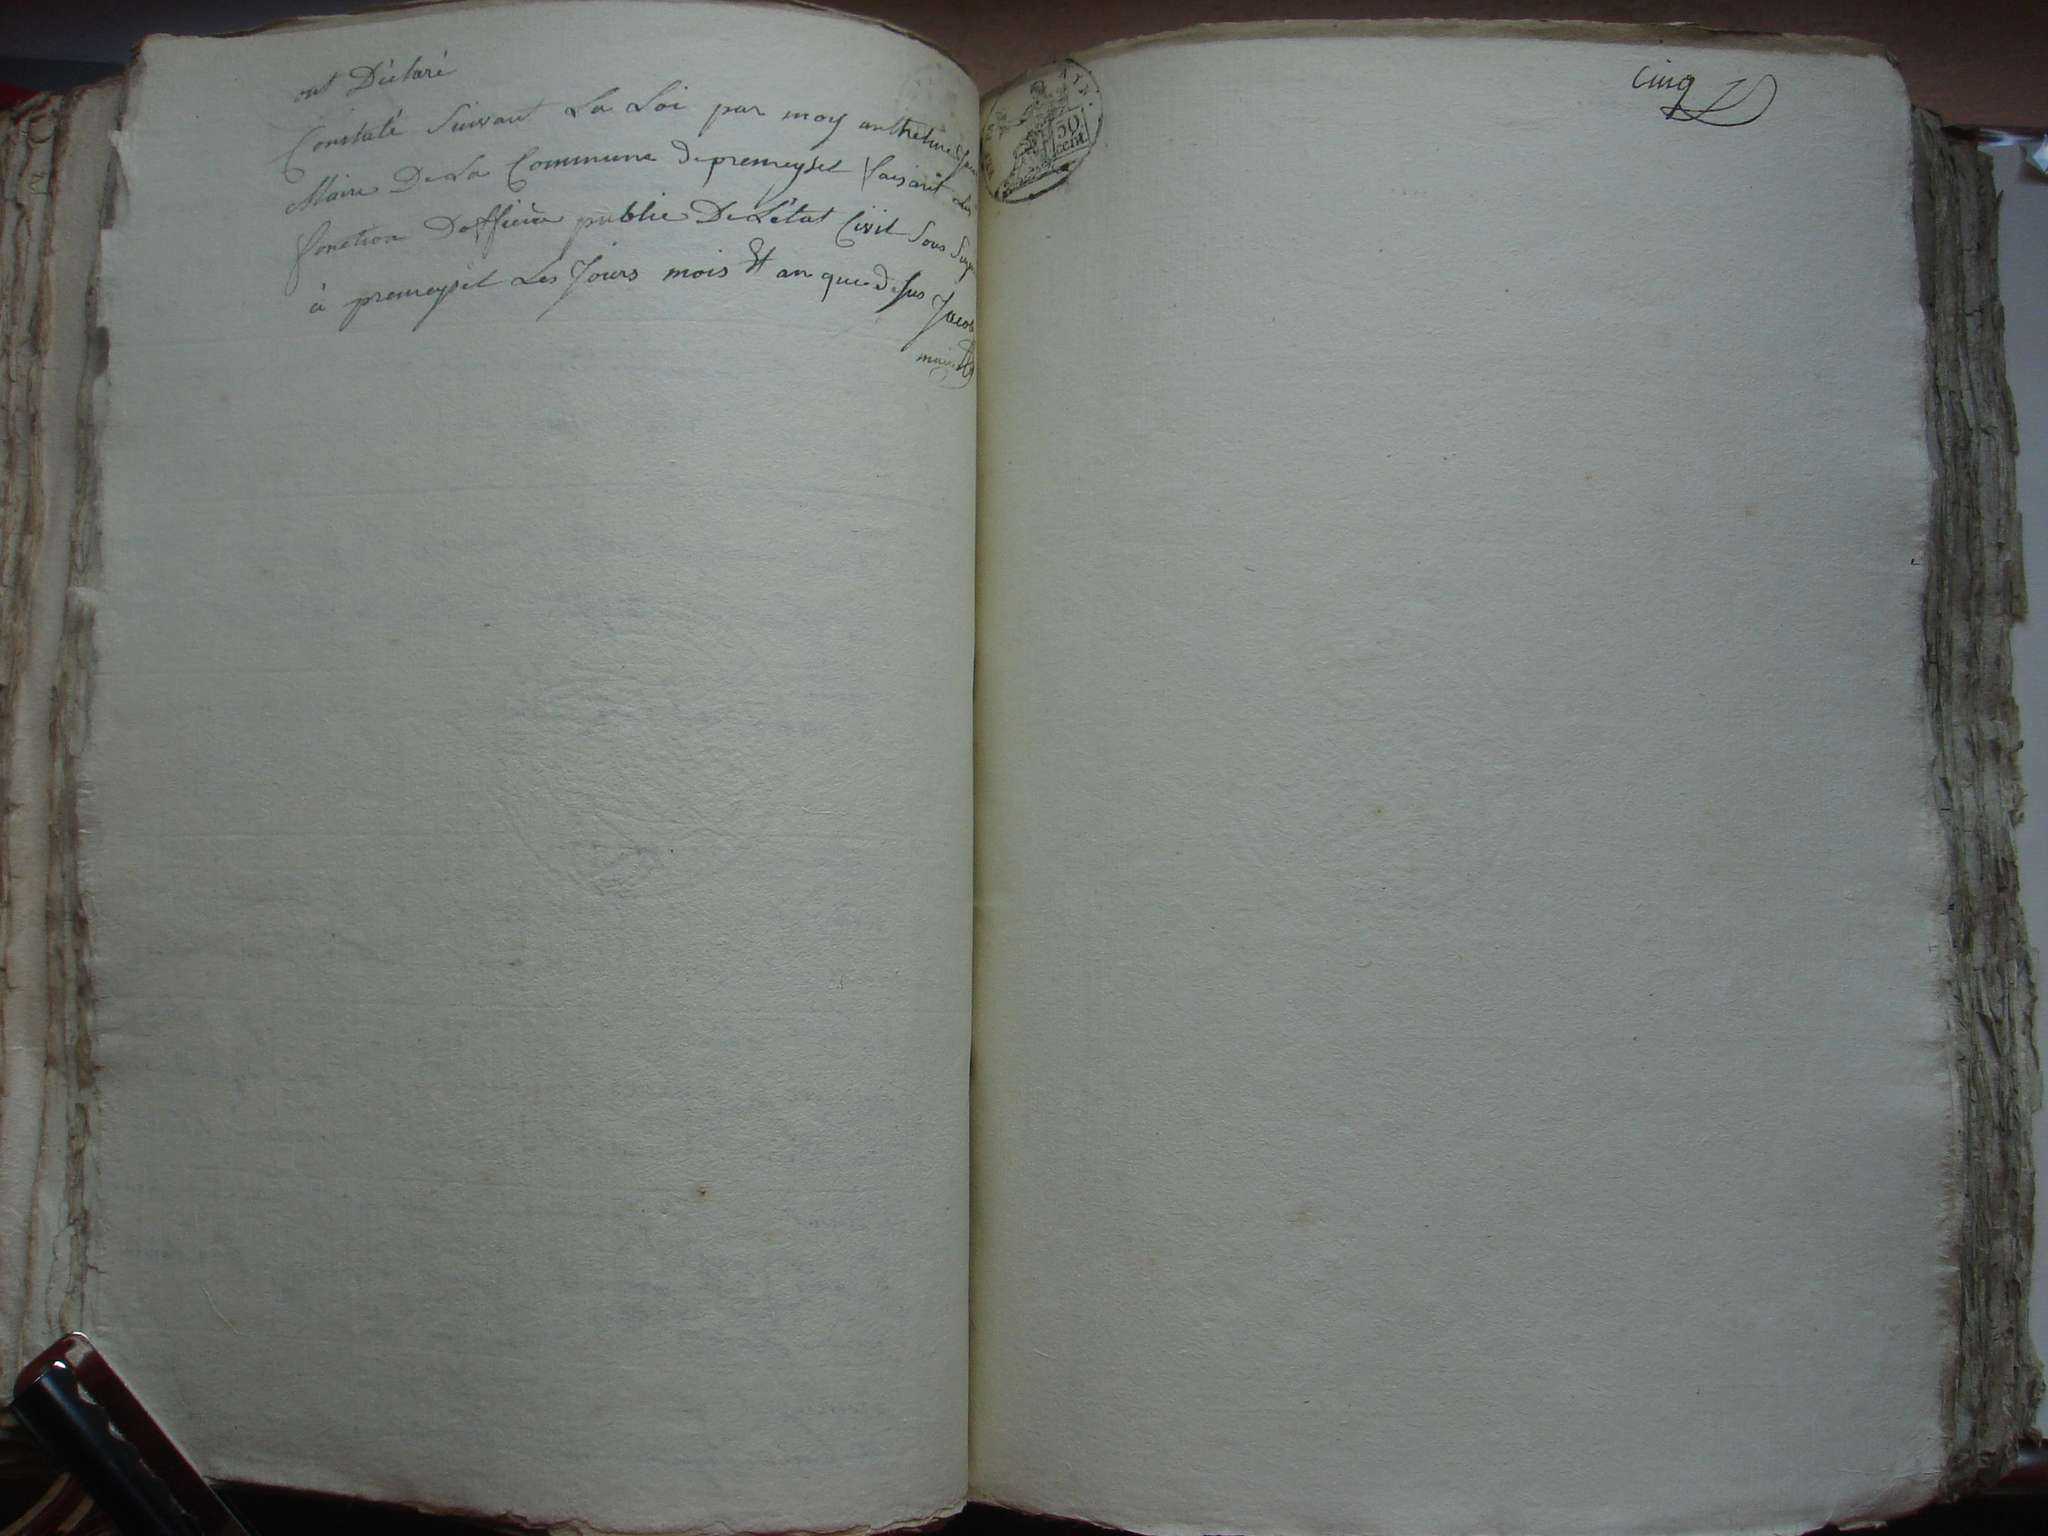 ont Déclaré
Constaté Suivant La Loi par moy
Maire De La Commune de premeyset faisant les
fonction Dofficier public De L'état Civil Sous
à premeysel Les Jours mois Et an que desus Jacob
maire
cinq
50
cent.